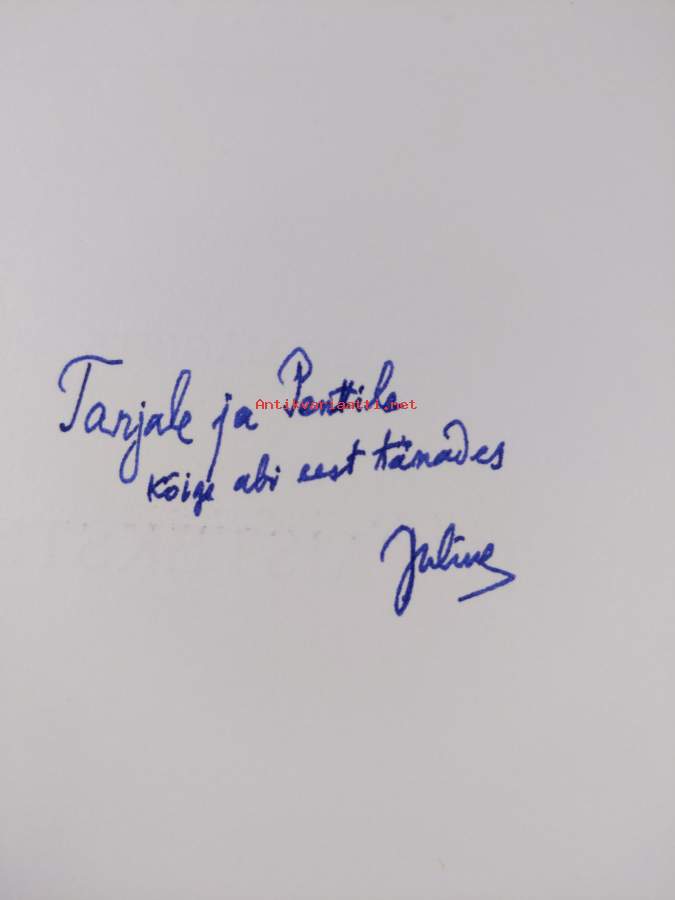 Tarjale ja Penttile
Antikvariaatti.net
kõige abi eest tänades
Julius